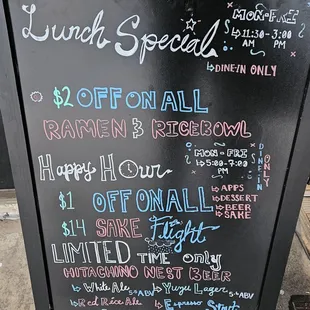 Lunch Special
MON-FRI
11:30-3:00
AM PM
DINE-IN ONLY
$2 OFF ON ALL
RAMEN & RICEBOWL
Happy Hour
MON-FRI
5:00-7:00
PM
DINE-IN
ONLY
$1 OFF ON ALL
APPS
DESSERT
BEER
SAKE
$14 SAKE Flight
LIMITED TIME only
HITACHINO NEST BEER
White Ale 5%ABV
Yuzu Lager 5%ABV
Red Rice Ale
Espresso Stout